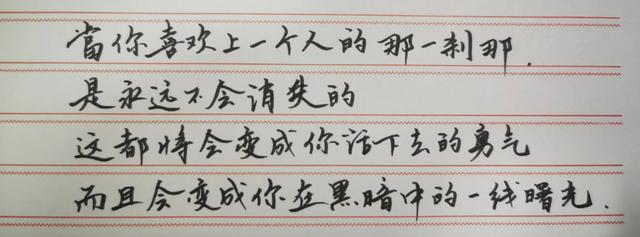 當你喜欢上一个人的那一刹那.
是永远不会消失的
这都将会变成你活下去的勇气
而且会变成你在黑暗中的一线曙光.